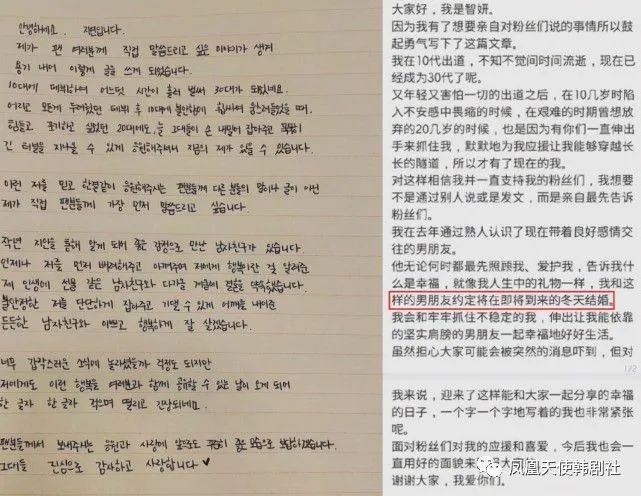 안녕하세요. 지연입니다.
제가 팬 여러분께 직접 말씀드리고 싶은 이야기가 생겨
용기 내어 이렇게 글을 쓰게 되었습니다.
10대에 데뷔하여 어느덧 시간이 흘러 벌써 30대가 됐네요.
어리고 모든게 두려웠던 데뷔 후 10대에 불안함에 휩싸여 움츠러들었을 때,
힘들고 포기하고 싶었던 20대에도, 늘 그대들이 손 내밀어 잡아주고 묵묵히
긴 터널을 지나올 수 있게 응원해주셔서 지금의 제가 있을 수 있습니다.
이런 저를 믿고 한결같이 응원해주시는 팬분들께 다른 분들의 말이나 글이 아닌
제가 직접 팬분들께 가장 먼저 말씀드리고 싶습니다.
작년 지인을 통해 알게 돼서 좋은 감정으로 만난 남자친구가 있습니다.
언제나 저를 먼저 배려해주고 아껴주며 저에게 행복이란 걸 알려준
제 인생에 선물 같은 남자친구와 다가올 겨울에 결혼을 약속했습니다.
불안정한 저를 단단하게 잡아주고 기댈 수 있게 어깨를 내어준
든든한 남자친구와 이쁘고 행복하게 잘 살겠습니다.
너무 갑작스러운 소식에 놀라셨을까 걱정도 되지만
저에게도 이런 행복을 여러분과 함께 공유할 수 있는 날이 오게 되어
한 글자 한 글자 적으며 떨리고 긴장되네요.
팬분들께서 보내주시는 응원과 사랑에 앞으로도 꾸준히 좋은 모습으로 보답하겠습니다.
그대들 진심으로 감사하고 사랑합니다 ♥
大家好，是智妍。
因为我有了想要亲自对粉丝们说的事情所以鼓
起勇气写下了这篇文章。
我在10代出道，不知不觉间时间流逝，现在已
经成为30代了呢。
又年轻又害怕一切的出道之后，在10几岁时陷
入不安感中畏缩的时候，在艰难的时期曾想放
弃的20几岁的时候，也是因为有你们一直伸出
手来抓住我，默默地为我应援让我能够穿越长
长的隧道，所以才有了现在的我。
对这样相信我并一直支持我的粉丝们，我想要
不是通过别人说或是发文，而是亲自最先告诉
粉丝们。
我在去年通过熟人认识了现在带着良好感情交
往的男朋友。
他无论何时都最先照顾我、爱护我，告诉我什
么是幸福，就像我人生中的礼物一样，我和这
样的男朋友约定将在即将到来的冬天结婚。
我会和牢牢抓住不稳定的我，伸出让我能依靠
的坚实肩膀的男朋友一起幸福地好好生活。
虽然担心大家可能会被突然的消息吓到，但对
1/2
我来说，迎来了这样能和大家一起分享的幸福
的日子，一个字一个字地写着的我也非常紧张
呢。
面对粉丝们对我的应援和喜爱，今后我也会一
直用好的面貌来
谢谢大家，我爱你们。
凤凰天使韩剧社